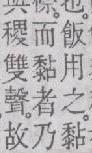 也。飯用之。黏
而黏者乃
與稷雙聲。故